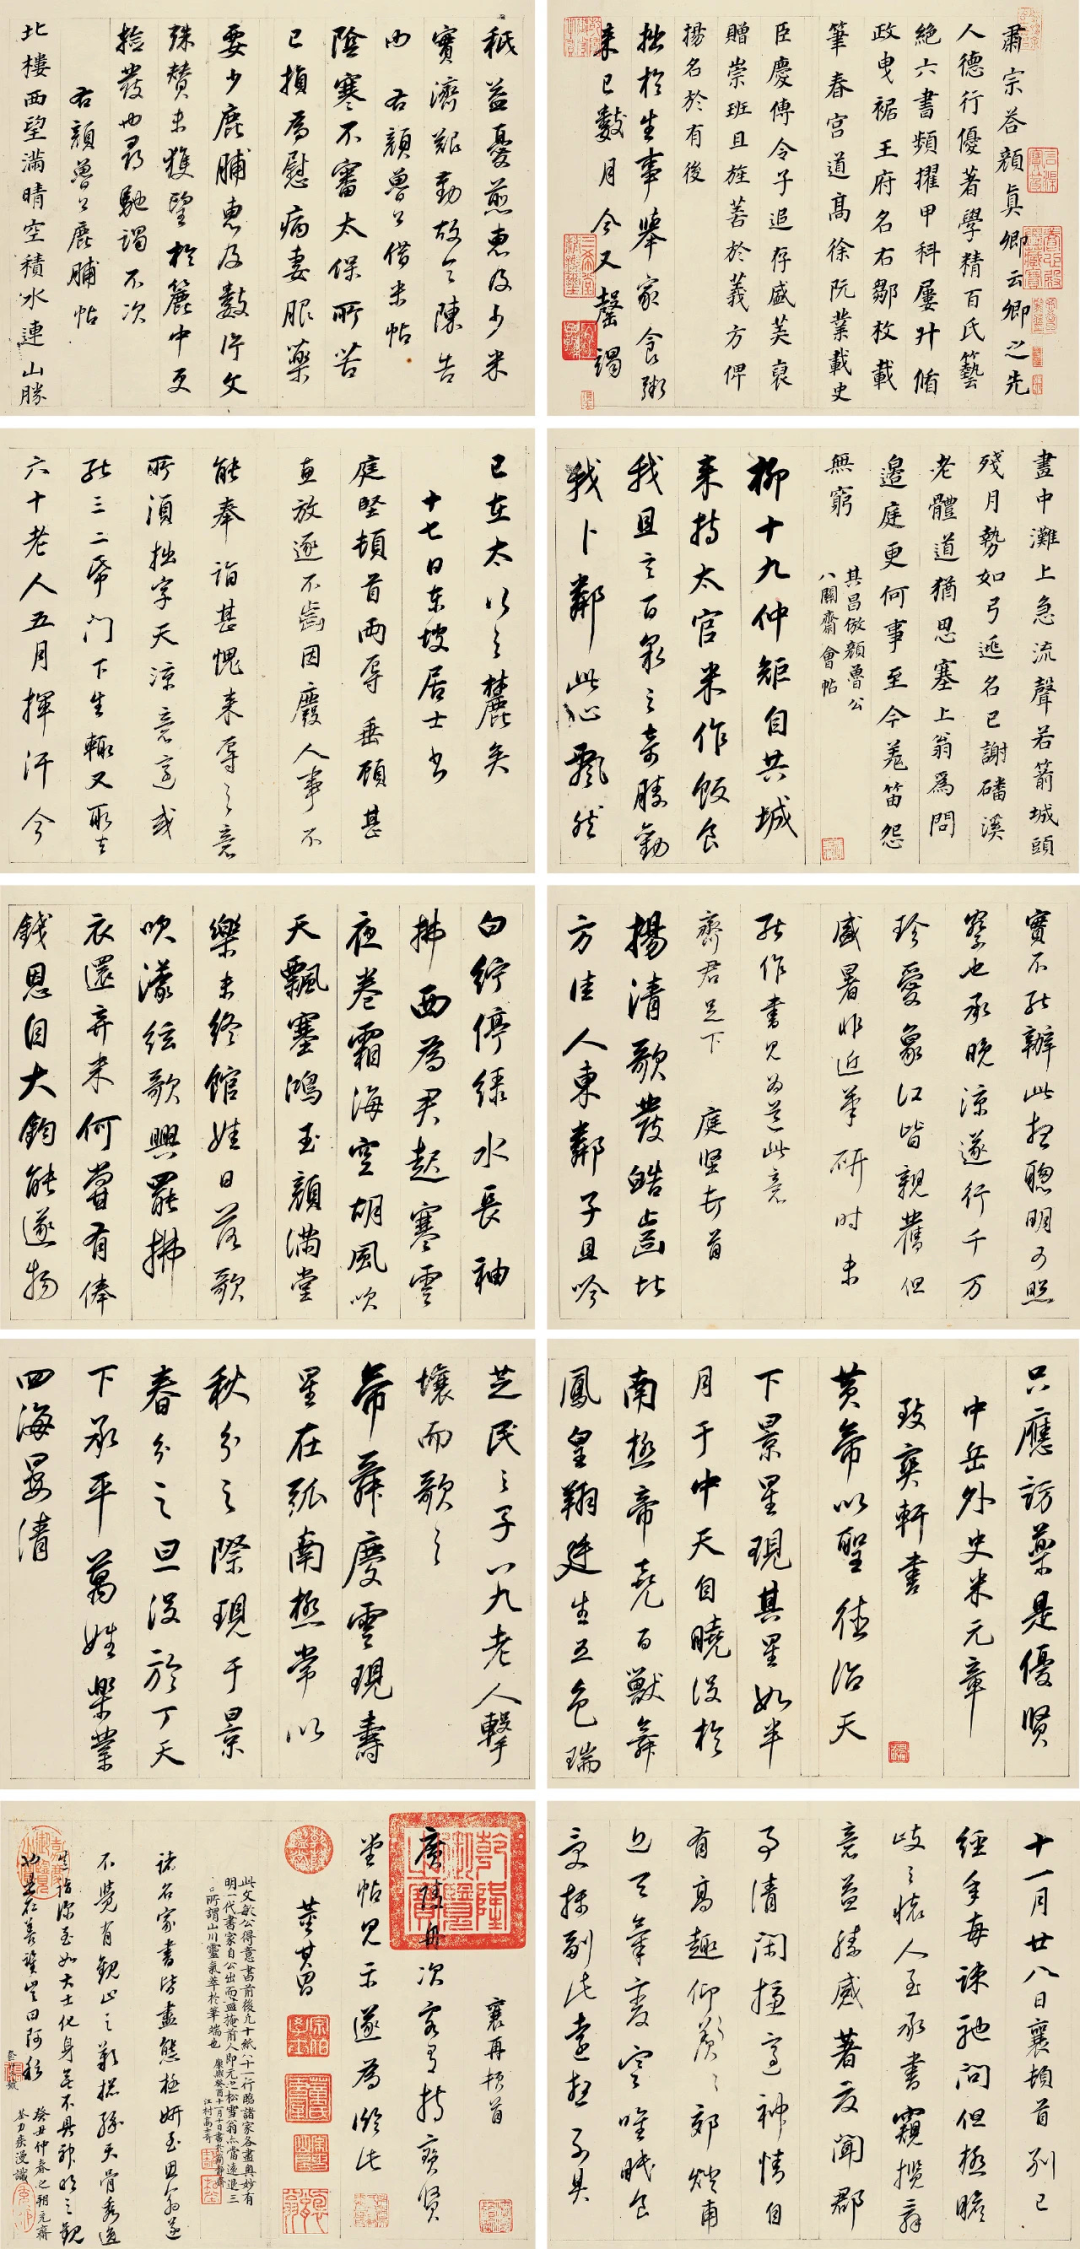 肅宗答顏真卿云卿之先
人德行優著學精百氏藝
絕六書頻擢甲科屢升循
政曳裾王府名右鄒枚載
筆春宮道高徐阮業載史
臣慶傳令子追存盛美裒
贈崇班且旌善於義方俾
揚名於有後
拙於生事舉家食粥
來已數月今又罄竭
秖益憂煎惠及少米
實濟艱勤故令陳告
也 右顏魯公借米帖
陰寒不審太保所苦
已損為慰病妻服藥
要少鹿脯惠及數片久
殊贊未獲望於簏中更
撿發也尋馳謁不次
右顏魯公鹿脯帖
北樓西望滿晴空積水連山勝
畫中灘上急流聲若箭城頭
殘月勢如弓逃名已謝磻溪
老體道猶思塞上翁為問
邊庭更何事至今羌笛怨
無窮
其昌倣顏魯公
八關齋會帖
柳十九仲矩自共城
來持太官米作飯食
我且言百泉之奇勝勸
我卜鄰此心飄然
已在太行之麓矣
十七日東坡居士書
庭堅頓首兩辱垂顧甚
直放逐不齒因廢人事不
能奉詣甚愧來辱之意
所須拙字天涼意適或
能三二紙門下生輒又取去
六十老人五月揮汗今
實不能辦此想聰明可照
察也承晚涼遂行千萬
珍愛象江皆親舊但
盛暑非近筆研時未
能作書見為道此意
齊君足下 庭堅頓首
揚清歌發皓齒北
方佳人東鄰子且吟
白紵停綠水長袖
拂面為君起寒雲
夜卷霜海空胡風吹
天飄塞鴻玉顏滿堂
樂未終館娃日落歌
吹濛絃歌興罷拂
衣還弃米何嘗有俸
錢恩自大鈞能遂物
只應訪藥是優賢
中岳外史米元章
致爽軒書
黃帝以聖德治天
下景星現其星如半
月于中天自曉沒於
南極帝堯百獸舞
鳳皇翔廷生五色瑞
芝民之子八九老人擊
壤而歌之
帝舜慶雲現壽
星在弧南極常以
秋分之際現于景
春分之旦沒於丁天
下承平萬姓樂業
四海晏清
十一月廿八日襄頓首別已
經年每疎馳問但極瞻
岐之懷人至承書窺攬辭
意益勝感著友聞郡
事清閑攝養神情自
有高趣仰羨羨郊
近天氣變寒唯眠食
受探副此遠想不具
襄再頓首
廣陵舟次客有持寶賢
堂帖見示遂為臨此
董其昌
此文敏公得意書前後九十紙八十一行臨諸家各盡奧妙有
明一代書家自公出而盡掩前人即元之松雪翁亦當遠退三
舍所謂山川靈氣萃於筆端也
江村高士奇
諸名家書皆盡態極妍至思翁遂
不覺有觀止之歎
癸丑仲春之朔